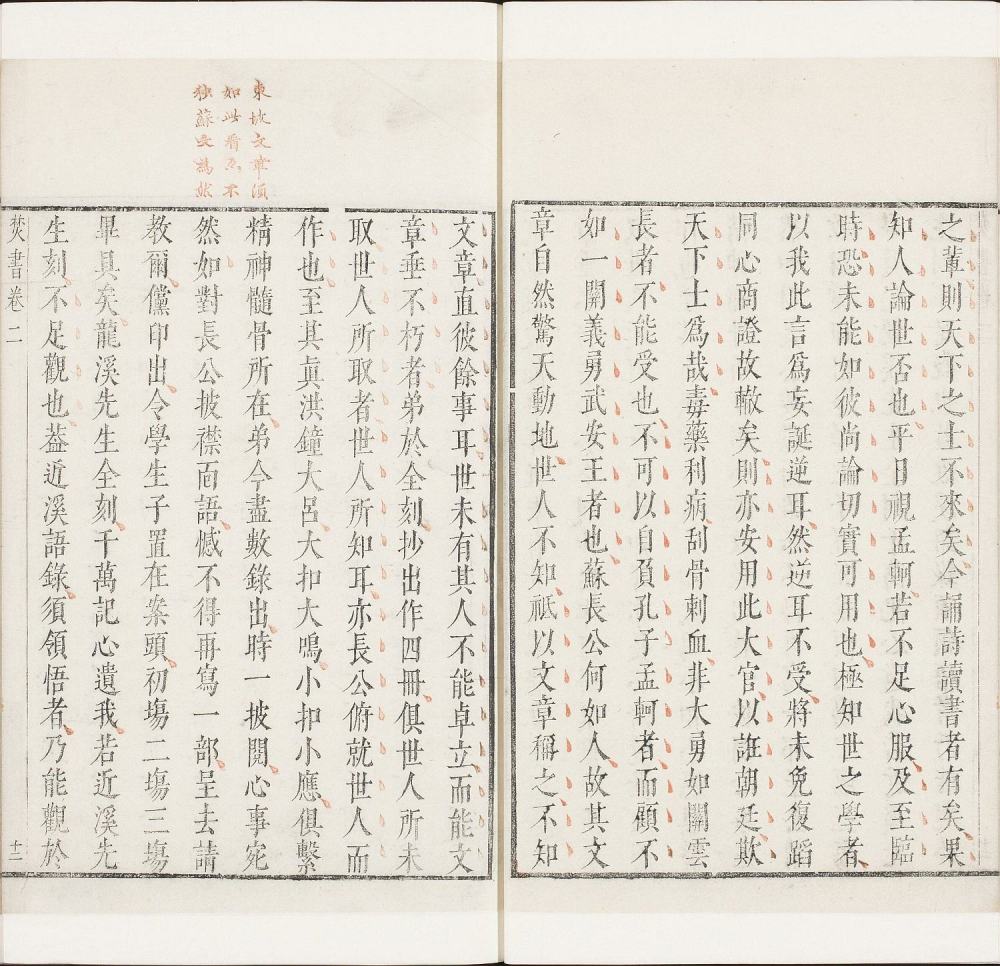 之輩則天下之士不來矣今誦詩讀書者有矣果
知人論世否也平日視孟軻若不足心服及至臨
時恐未能如彼尚論切實可用也極知世之學者
以我此言爲妄誕逆耳然逆耳不受將未免復蹈
同心商證故轍矣則亦安用此大官以誑朝廷欺
天下士爲哉毒藥利病刮骨刺血非大勇如關雲
長者不能受也不可以自負孔子孟軻者而顧不
如一關義勇武安王者也蘇長公何如人故其文
章自然驚天動地世人不知祗以文章稱之不知
東坡文章須
如此看不
獨蘇文爲然
文章直彼餘事耳世未有其人不能卓立而能文
章垂不朽者弟於全刻抄出作四冊俱世人所未
取世人所取者世人所知耳亦長公俯就世人而
作也至其眞洪鐘大呂大扣大鳴小扣小應俱繫
精神髓骨所在弟今盡數錄出時一披閱心事宛
然如對長公披襟面語憾不得再寫一部呈去請
教爾儻印出令學生子置在案頭初塲二塲三塲
畢具矣龍溪先生全刻千萬記心遺我若近溪先
生刻不足觀也葢近溪語錄須領悟者乃能觀於
焚書卷二
十二